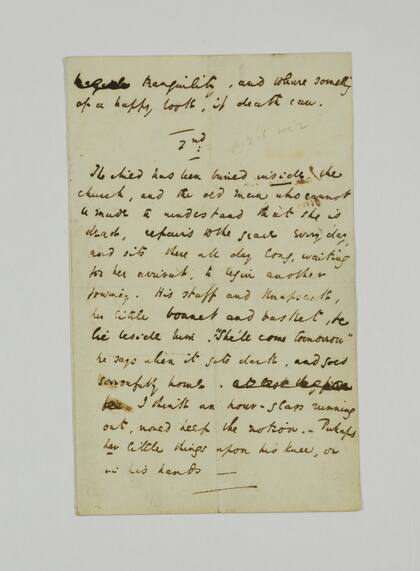 tranquility, and where something
of a happy look, if death can.
2nd
The child has been buried inside the
church, and the old man who cannot
be made to understand that she is
dead, repairs to the grave every day,
and sits there all day long, waiting
for her arrival, to begin another
journey. His staff and knapsack,
her little bonnet and basket, &c
lie beside him. "She'll come tomorrow"
he says when it gets dark, and goes
sorrowfully home.
I think an hour-glass running
out, would help the notion. – Perhaps
her little things upon his knee, or
in his hands —